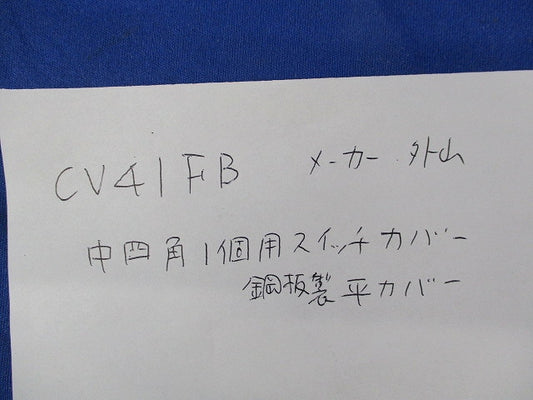 CV41FB メーカー 外山
中四角1個用スイッチカバー
鋼板製平カバー